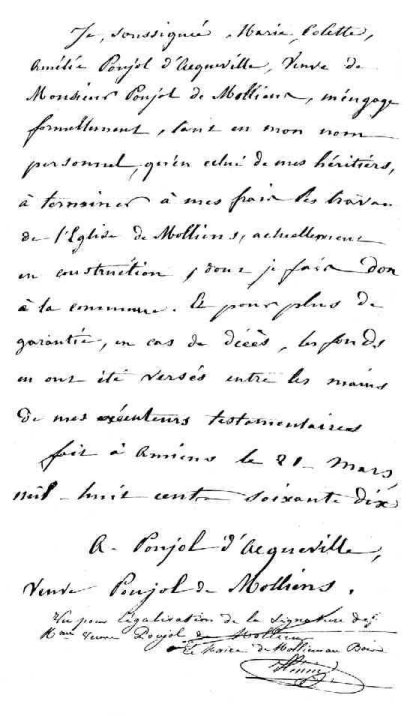 Je, soussignée, Marie, Colette,
Amélie Poujol d'Acqueville, Veuve de
Monsieur Poujol de Molliens, m'engage
formellement, tant en mon nom
personnel, qu'en celui de mes héritiers,
à terminer à mes frais les travaux
de l'Eglise de Molliens, actuellement
en construction, dont je fais don
à la commune. Et pour plus de
garantie, en cas de décès, les fonds
en ont été versés entre les mains
de mes exécuteurs testamentaires
fait à Amiens le 21 Mars
mil huit cent soixante dix
A. Poujol d'Acqueville,
Veuve Poujol de Molliens.
Vu pour légalisation de la signature de
Mme Veuve Poujol de Molliens
Le Maire de Molliens au Bois